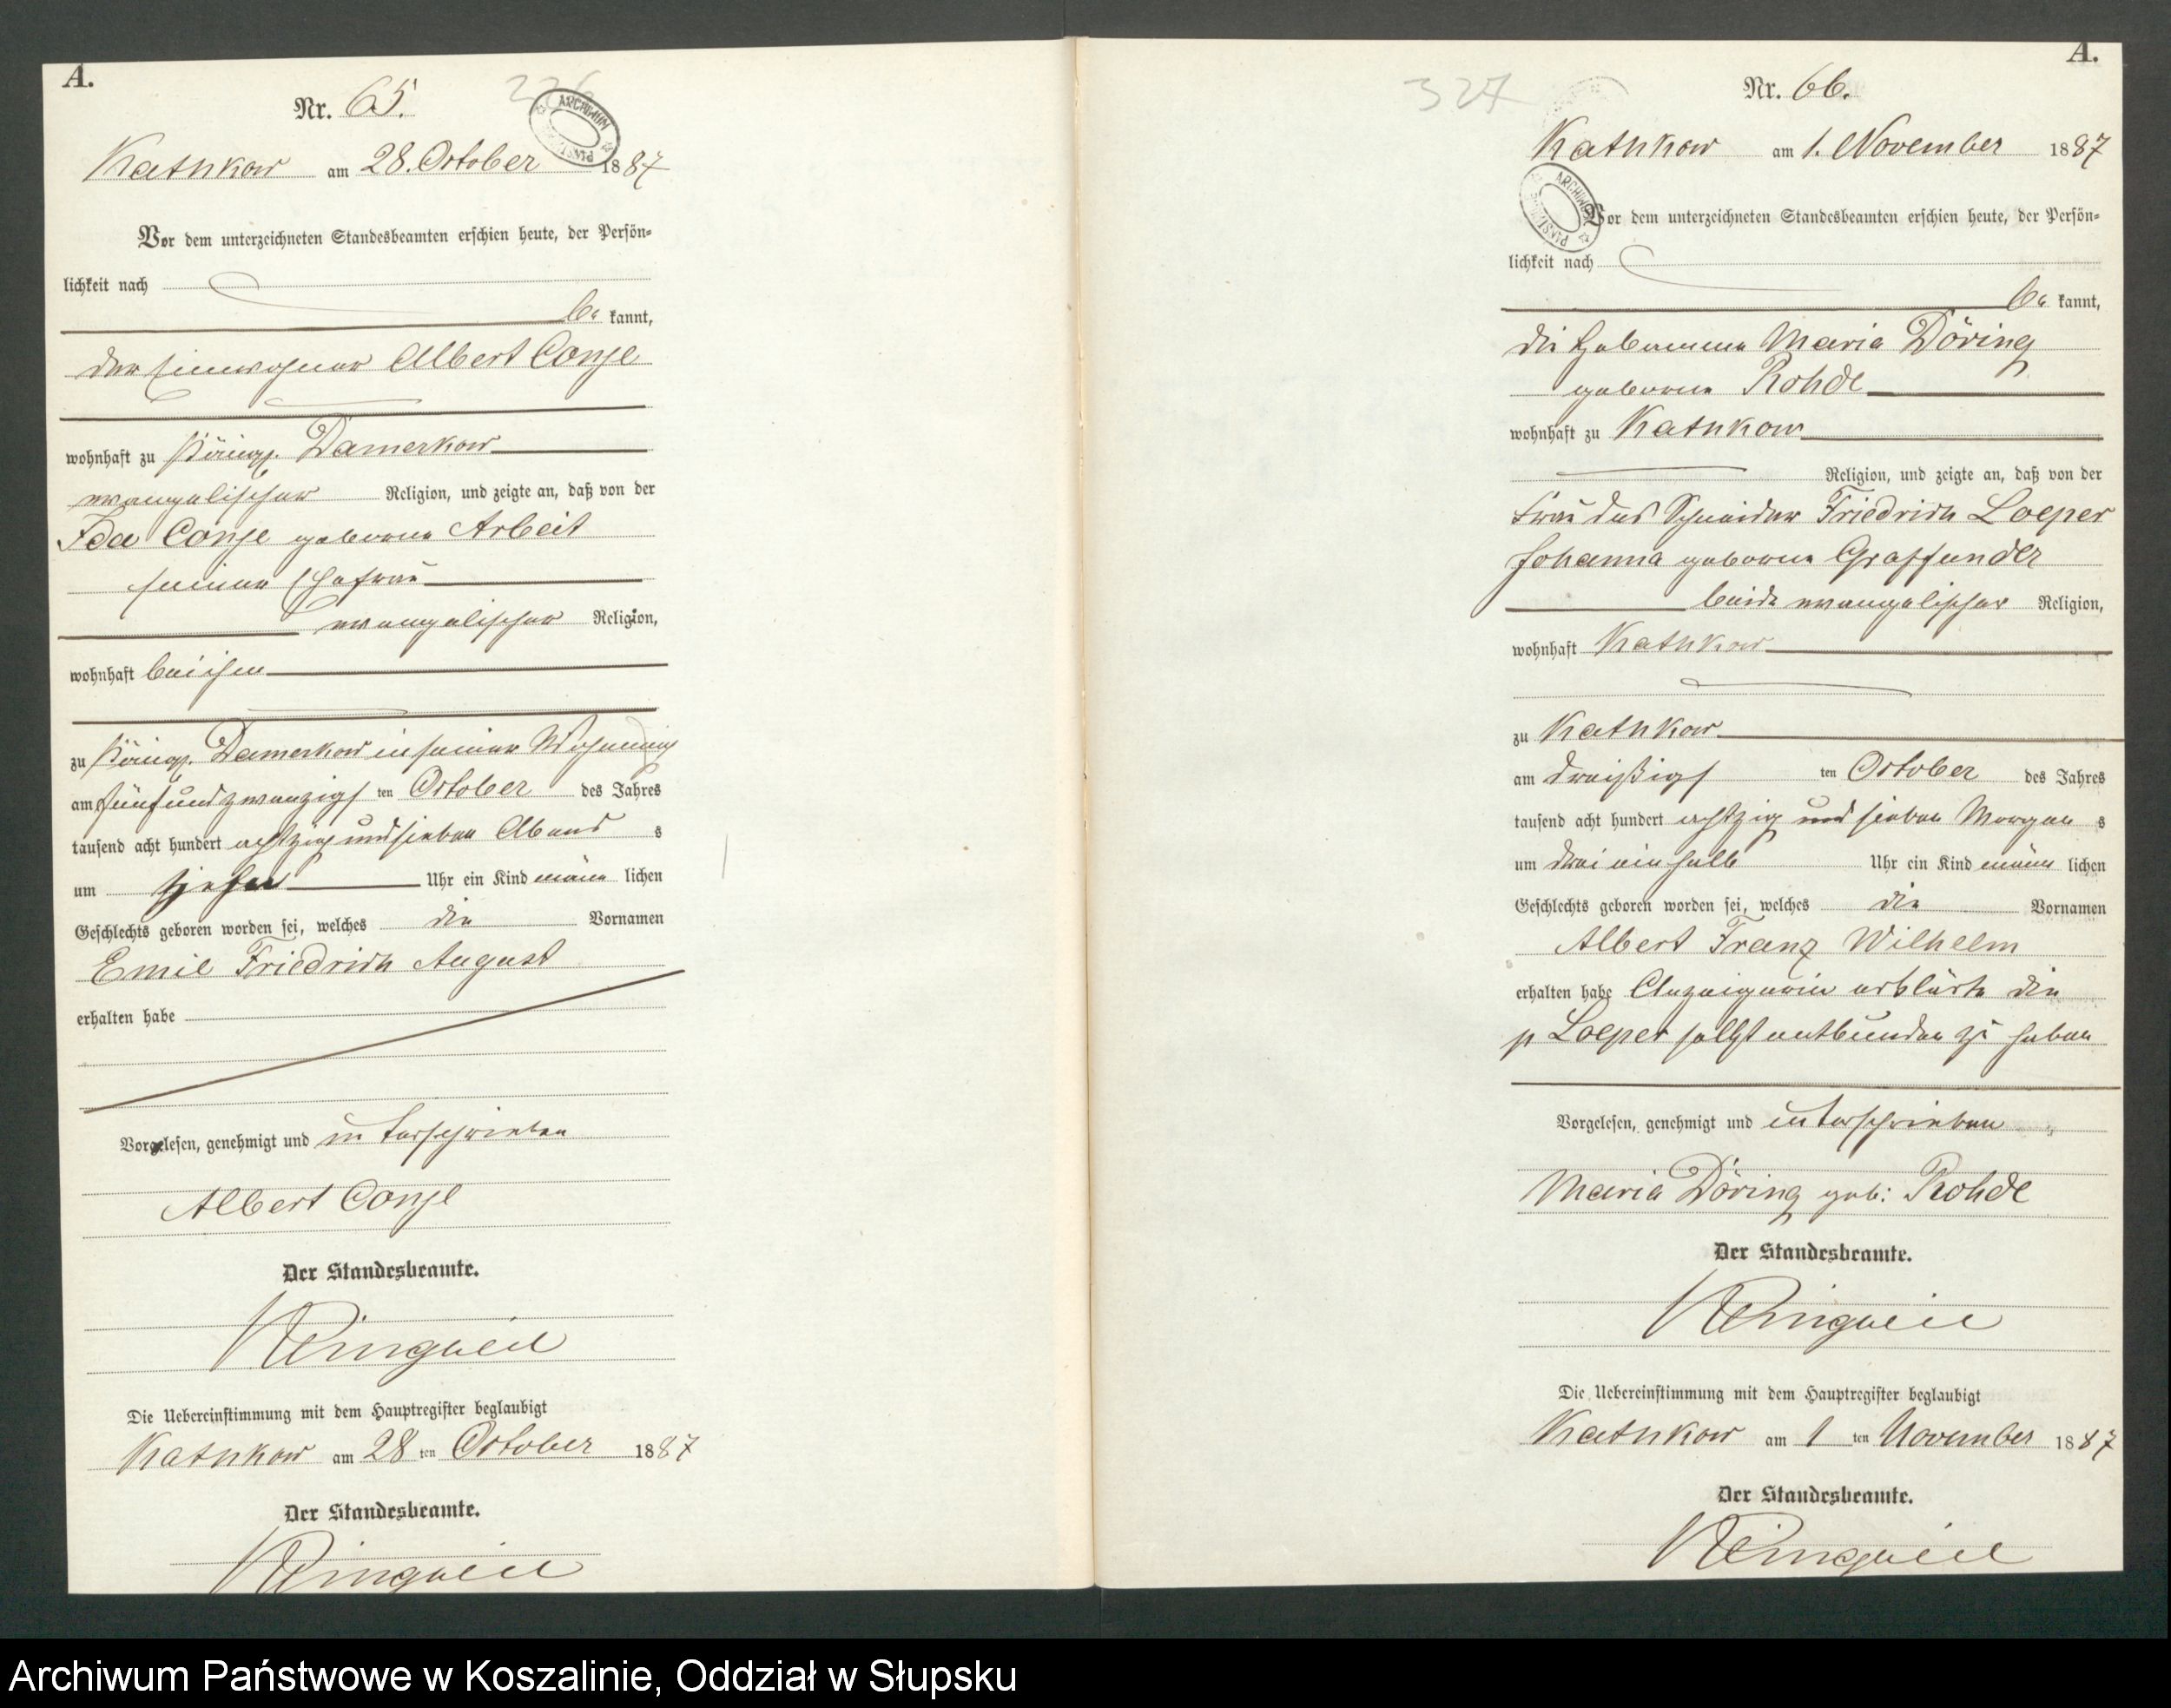 A.
Nr. 65.
326
ARCHIWUM
Kathkow am 28. October 1887
Vor dem unterzeichneten Standesbeamten erschien heute, der Persön-
lichkeit nach
be kannt,
der Einwohner Albert Conje
wohnhaft zu Königl. Damerkow
evangelischer Religion, und zeigte an, daß von der
Ida Conje geborene Arbeit
seiner Ehefrau
evangelischer Religion,
wohnhaft bei ihm
zu Königl. Damerkow in seiner Wohnung
am fünf und zwanzigs ten October des Jahres
tausend acht hundert achtzig und sieben Abend s
um zehn Uhr ein Kind männ lichen
Geschlechts geboren worden sei, welches die Vornamen
Emil Friedrich August
erhalten habe
Vorgelesen, genehmigt und unterschrieben
Albert Conje
Der Standesbeamte.
Die Uebereinstimmung mit dem Hauptregister beglaubigt
Kathkow am 28 ten October 1887
Der Standesbeamte.
A.
Nr. 66.
327
Kathkow am 1. November 1887
ARCHIWUM
Vor dem unterzeichneten Standesbeamten erschien heute, der Persön-
lichkeit nach
be kannt,
die Hebamme Maria Döring
geborene Rohde
wohnhaft zu Kathkow
Religion, und zeigte an, daß von der
Frau des Schneider Friedrich Loeper
Johanna geborene Graffunder
beide evangelischer Religion,
wohnhaft Kathkow
zu Kathkow
am dreißigs ten October des Jahres
tausend acht hundert achtzig und sieben Morgen s
um drei ein halb Uhr ein Kind männ lichen
Geschlechts geboren worden sei, welches die Vornamen
Albert Franz Wilhelm
erhalten habe Anzeigerin erklärte die
p Loeper selbst entbunden zu haben
Vorgelesen, genehmigt und unterschrieben
Maria Döring geb: Rohde
Der Standesbeamte.
Die Uebereinstimmung mit dem Hauptregister beglaubigt
Kathkow am 1 ten November 1887
Der Standesbeamte.
Archiwum Państwowe w Koszalinie, Oddział w Słupsku